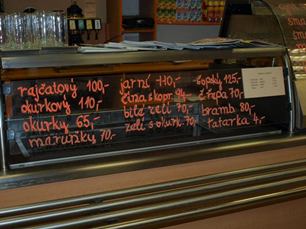 rajčatový 100,-
okurkový 110,-
okurky 65,-
meruňky 70,-
jarní 110,-
čína s kopr. 94,-
bílé zelí 70,-
zelí s okurk. 70,-
šopský 125,-
č. řepa 70,-
bramb. 80,-
tatarka 4,-